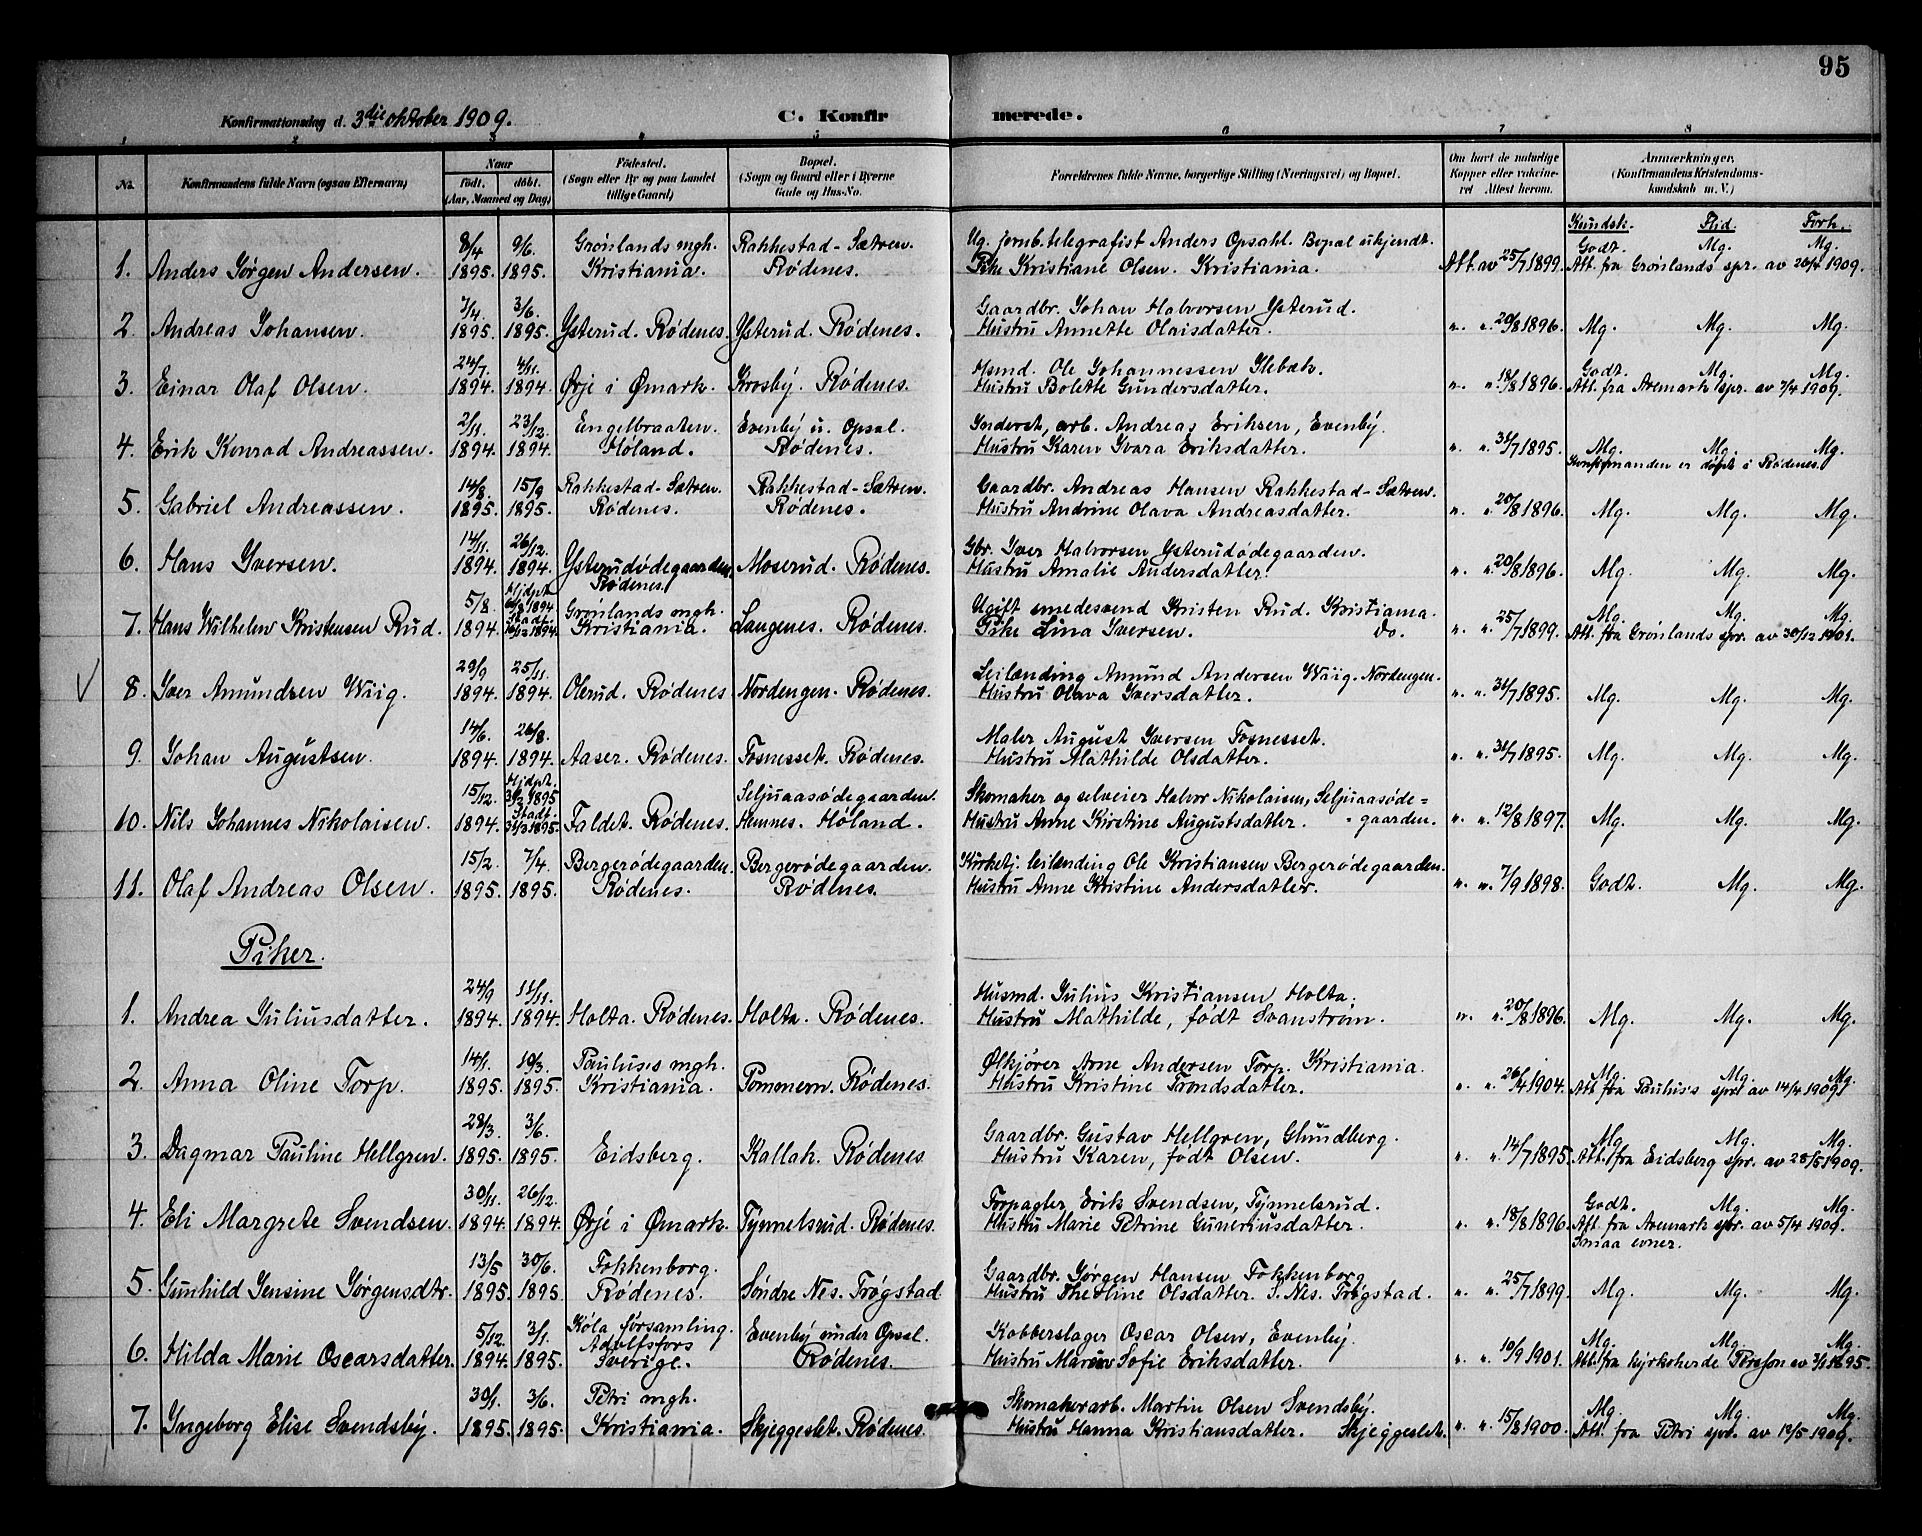 95
Konfirmationsdag d. 3die oktober 1909.
C. Konfirmerede.
1 2 3 4 5 6 7 8
No. Konfirmandens fulde Navn (ogsaa Efternavn) Naar født, døbt. (Aar, Maaned og Dag) Fødested. (Sogn eller By og paa Landet tillige Gaard) Bopæl. (Sogn og Gaard eller i Byerne Gade og Hus-No. Forældrenes fulde Navne, borgerlige Stilling (Næringsvei) og Bopæl. Om havt de naturlige Kopper eller vaccineret Attest herom. Anmærkninger, (Konfirmandens Kristendomskundskab m. V.)
Kundsk. Flid. Forh.
8/4 9/6. Grønlands mgh. Rakkestad-Sætren. Ug. jernb.telegrafist Anders Opsahl. Bopæl ukjendt. Godt. Mg. Mg.
1. Anders Jørgen Andersen. 1895. 1895. Kristiania. Rødenes. Pike Kristiane Olsen. Kristiania. Att. av 25/7 1899. Att. fra Grønlands spr. av 20/4 1909.
7/4. 3/6. Gaardbr. Johan Halvorsen Ysterud.
2. Andreas Johansen. 1895. 1895. Ysterud. Rødenes. Ysterud. Rødenes. Hustru Annette Olaisdatter. " " 20/8 1896. Mg. Mg. Mg.
24/7 4/11. Hsmd. Ole Johannessen Glebæk. Godt. Mg. Mg.
3. Einar Olaf Olsen. 1894. 1894. Ørje i Ømark. Krosby. Rødenes. Hustru Bolette Gundersdatter. " " 18/8 1896. Att. fra Aremark spr. av 7/4 1909.
2/11. 23/12. Engelbraaten. Evenby u. Opsal. Inderst, arb. Andreas Eriksen, Evenby.
4. Erik Konrad Andreassen. 1894. 1894. Høland. Rødenes. Hustru Karen Ivara Eriksdatter. " " 31/7 1895. Mg. Mg. Mg.
Konfirmanden er døpt i Rødenes.
14/8. 15/9 Rakkestad-Sætren. Rakkestad-Sætren. Gaardbr. Andreas Hansen Rakkestad-Sætren.
5. Gabriel Andreassen. 1895. 1895. Rødenes. Rødenes. Hustru Andrine Olava Andreasdatter. " " 20/8 1896. Mg. Mg. Mg.
14/11. 26/12. Gbr. Iver Halvorsen Ysterudødegaarden.
6. Hans Iversen. 1894. 1894. Ysterudødegaarden. Moserud. Rødenes. Hustru Amalie Andersdatter. " " 20/8 1896. Mg. Mg. Mg.
Rødenes.
5/8. Hjdpt. 1894 Stadf. Grønlands mgh. Ugift smedesvend Kristen Rud. Kristiania. Mg. Mg. Mg.
7. Hans Wilhelm Kristensen Rud. 1894. 1894. Kristiania. Langenes. Rødenes. Pike Lina Iversen. do. " " 25/7 1899. Att. fra Grønlands spr. av 30/12 1901.
29/9 25/11. Leilænding Amund Andersen Wiig. Nordengen.
8. Iver Amundsen Wiig. 1894. 1894. Olerud. Rødenes Nordengen. Rødenes. Hustru Olava Iversdatter. " " 31/7 1895. Mg. Mg. Mg.
14/6. 26/8. Maler August Iversen Fosnesset.
9. Johan Augustsen. 1894. 1894. Aaser. Rødenes. Fosnesset. Rødenes. Hustru Mathilde Olsdatter. " " 31/7 1895. Mg. Mg. Mg.
15/12. Hjdpt. 1895 Stadf. Seljuaasødegaarden. Skomaker og selveier Halvor Nikolaisen, Seljuaasøde=
10. Nils Johannes Nikolaisen. 1894. 1895. Faldet. Rødenes. Hemnes. Høland. Hustru Anne Kirstine Augustsdatter. -gaarden. " " 12/8 1897. Mg. Mg. Mg.
15/2. 7/4. Bergerødegaarden. Bergerødegaarden. Kirketj. leilænding Ole Kristiansen Bergerødegaarden.
11. Olaf Andreas Olsen. 1895. 1895. Rødenes. Rødenes. Hustru Anne Kristine Andersdatter. " " 7/9 1898. Godt. Mg. Mg.
Piker.
24/9 11/11. Husmd. Julius Kristiansen Holta.
1. Andrea Juliusdatter. 1894. 1894. Holta. Rødenes. Holta. Rødenes. Hustru Mathilde, født Svanstrøm. " " 20/8 1896. Mg. Mg. Mg.
14/1. 10/3. Paulus's mgh. Ølkjører Arne Andersen Torp. Kristiania Mg. Mg. Mg.
2. Anna Oline Torp. 1895. 1895. Kristiania. Pommern. Rødenes. Hustru Kristine Trondsdatter. " " 26/4 1904. Att. fra Paulus's spr. av 14/4 1909
28/3. 3/6. Gaardbr. Gustav Hellgren, Glundberg. Mg. Mg. Mg.
3. Dagmar Pauline Hellgren. 1895. 1895. Eidsberg. Kallak. Rødenes Hustru Karen, født Olsen. " " 14/7 1895. Att. fra Eidsberg spr. av 28/5 1909.
30/11. 26/12. Forpagter Erik Svendsen, Tymmelsrud. Godt. Mg. Mg.
4. Eli Margrete Svendsen. 1894. 1894. Ørje i Ømark. Tymmelsrud. Rødenes. Hustru Marie Petrine Guneriusdatter. " " 18/8 1896. Att. fra Aremark spr. av 5/4 1909.
Smaa evner.
13/5 30/6. Fokkenborg. Gaardbr. Jørgen Hansen Fokkenborg
5. Gunhild Jensine Jørgensdtr. 1895. 1895. Rødenes. Søndre Nes. Trøgstad. Hustru Thea Oline Olsdatter. S. Nes. Trøgstad. " " 25/7 1899. Mg. Mg. Mg.
5/12. 3/1. Køla församling. Adolfsfors Evenby under Opsal. Kobberslager Oscar Olsen, Evenby. Mg. Mg. Mg.
6. Hilda Marie Oscarsdatter. 1894. 1895. Sverige. Rødenes. Hustru Maren Sofie Eriksdatter. " " 10/9 1901. Att. fra kyrkoherde Persson av 3/1 1895.
30/1. 3/6. Petri mgh. Skomakerarb. Martin Olsen Svendsby. Mg. Mg. Mg.
7. Ingeborg Elise Svendsby. 1895. 1895. Kristiania. Skjeggeslet. Rødenes. Hustru Hanna Kristiansdatter. Skjeggeslet. " " 15/8 1900. Att. fra Petri spr. av 12/5 1909.